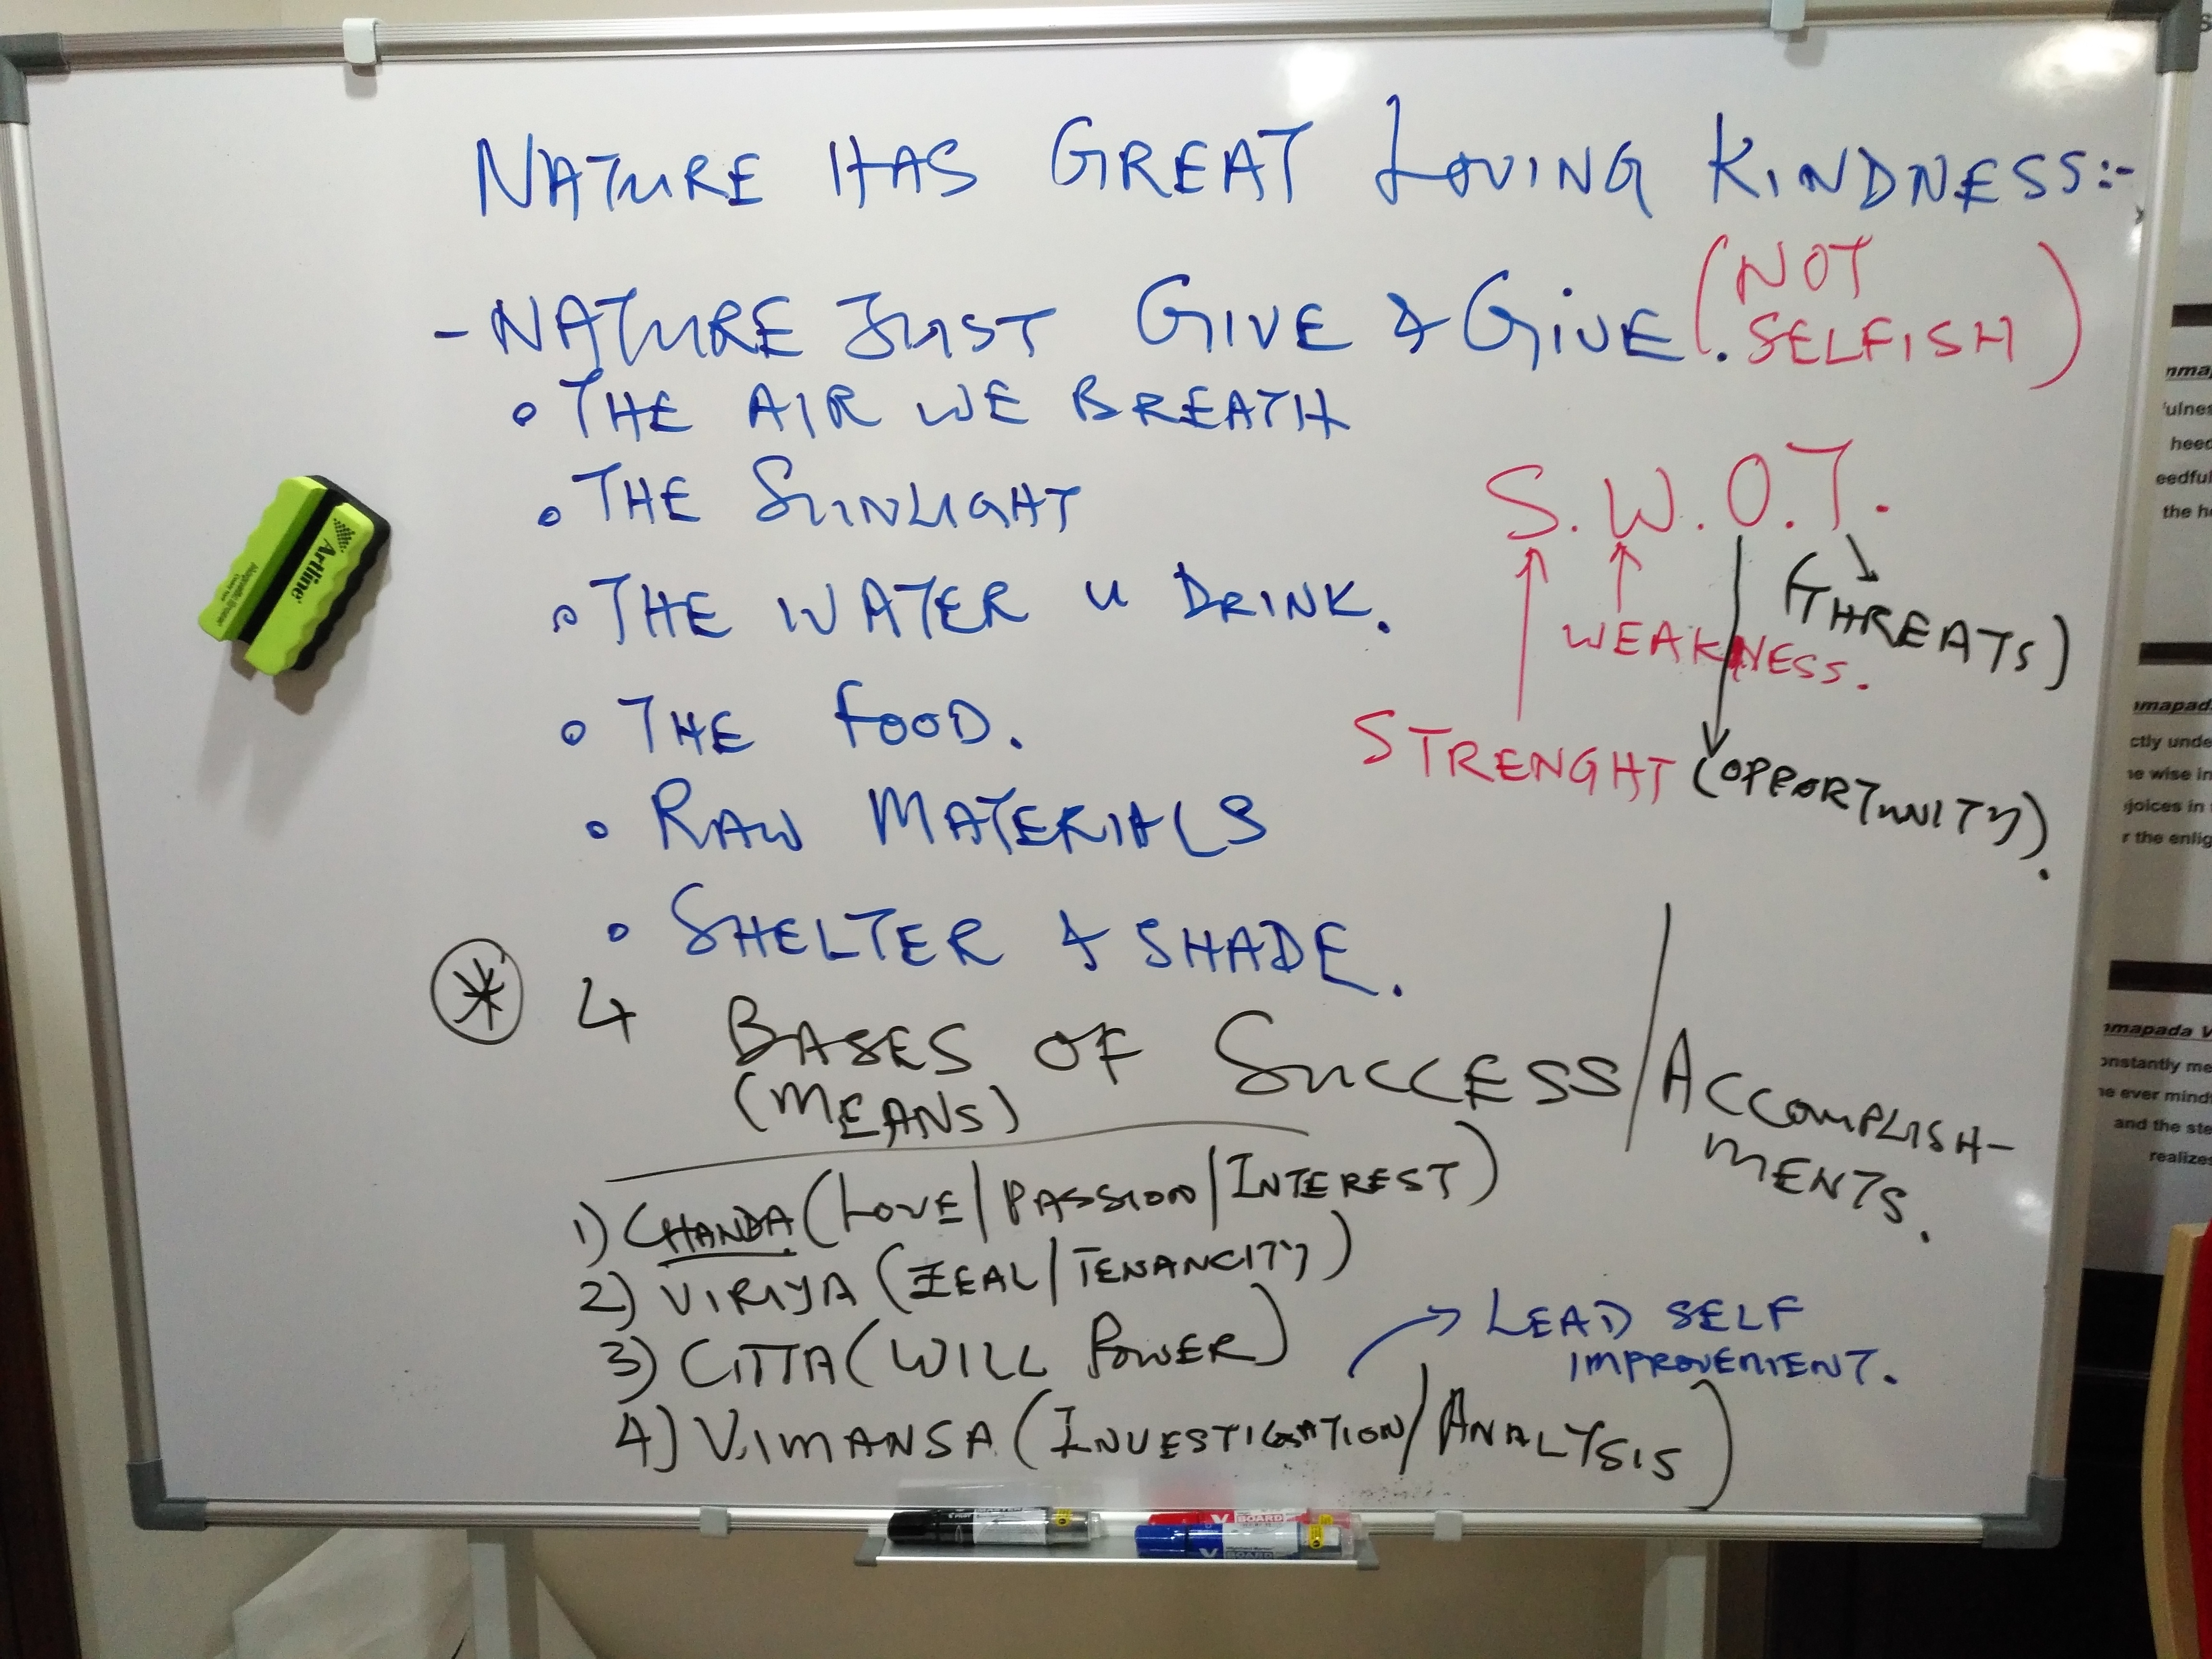 NATURE HAS GREAT LOVING KINDNESS:-
- NATURE JUST GIVE & GIVE. (NOT SELFISH)
• THE AIR WE BREATH
• THE SUNLIGHT
• THE WATER U DRINK.
• THE FOOD.
• RAW MATERIALS
• SHELTER & SHADE.
S.W.O.T.
(THREATS)
WEAKNESS.
STRENGHT
(OPPORTUNITY).
4 BASES OF SUCCESS/ACCOMPLISH-
(MEANS)
MENTS.
1) CHANDA (LOVE/PASSION/INTEREST)
2) VIRIYA (ZEAL/TENANCITY)
3) CITTA (WILL POWER)
→ LEAD SELF
IMPROVEMENT.
4) VIMANSA (INVESTIGATION/ANALYSIS)
Artline
heed
eedful
the
mapada
ctly unde
wise in
joices in
r the enlig
mapada V
onstantly me
ever mind
and the ste
realizes
BOARD
BOARD